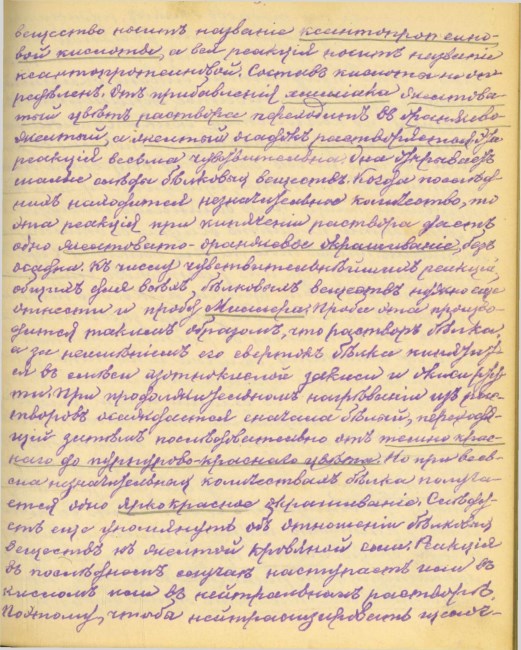 вещество носитъ названіе ксантопротеино-
вой кислоты, а вся реакція носитъ названіе
ксантопротеиновой. Составъ кислоты не оп-
редѣленъ. Отъ прибавленія амміака желтова-
тый цвѣтъ раствора переходитъ въ оранжево-
желтый, а желтый осадокъ растворяется. Эта
реакція весьма чувствительна. Она открываетъ
малые слѣды бѣлковыхъ веществъ. Когда послѣд-
нихъ находится незначительное количество, то
эта реакція при кипяченіи раствора даетъ
одно желтовато-оранжевое окрашиваніе, безъ
осадка. Къ числу чувствительнѣйшихъ реакцій,
общихъ для всѣхъ бѣлковыхъ веществъ нужно еще
отнести и пробу Миллона. Проба эта произво-
дится такимъ образомъ, что растворъ бѣлка,
а за неимѣніемъ его свертокъ бѣлка кипятит-
ся въ смѣси азотнокислой закиси и окиси рту-
ти. При продолжительномъ нагрѣваніи изъ рас-
творовъ осаждается сначала бѣлый, переходя-
щій затѣмъ послѣдовательно отъ темно крас-
наго до пурпурово-краснаго цвѣта. Но при весь-
ма незначительныхъ количествахъ бѣлка получа-
ется одно яркокрасное окрашиваніе. Слѣду-
етъ еще упомянуть объ отношеніи бѣлковыхъ
веществъ къ желтой кровяной соли. Реакція
въ послѣднемъ случаѣ наступаетъ или въ
кисломъ или въ нейтральномъ растворѣ.
Поэтому, чтобы нейтрализировать щелоч-